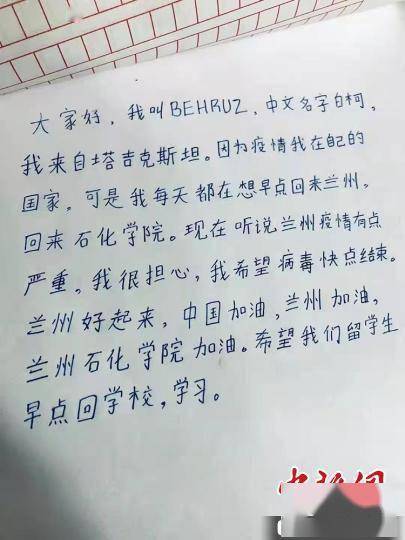 大家好，我叫BEHRUZ，中文名字白柯，
我来自塔吉克斯坦。因为疫情我在自己的
国家，可是我每天都在想早点回来兰州，
回来石化学院。现在听说兰州疫情有点
严重，我很担心，我希望病毒快点结束。
兰州好起来，中国加油，兰州加油，
兰州石化学院加油。希望我们留学生
早点回学校，学习。